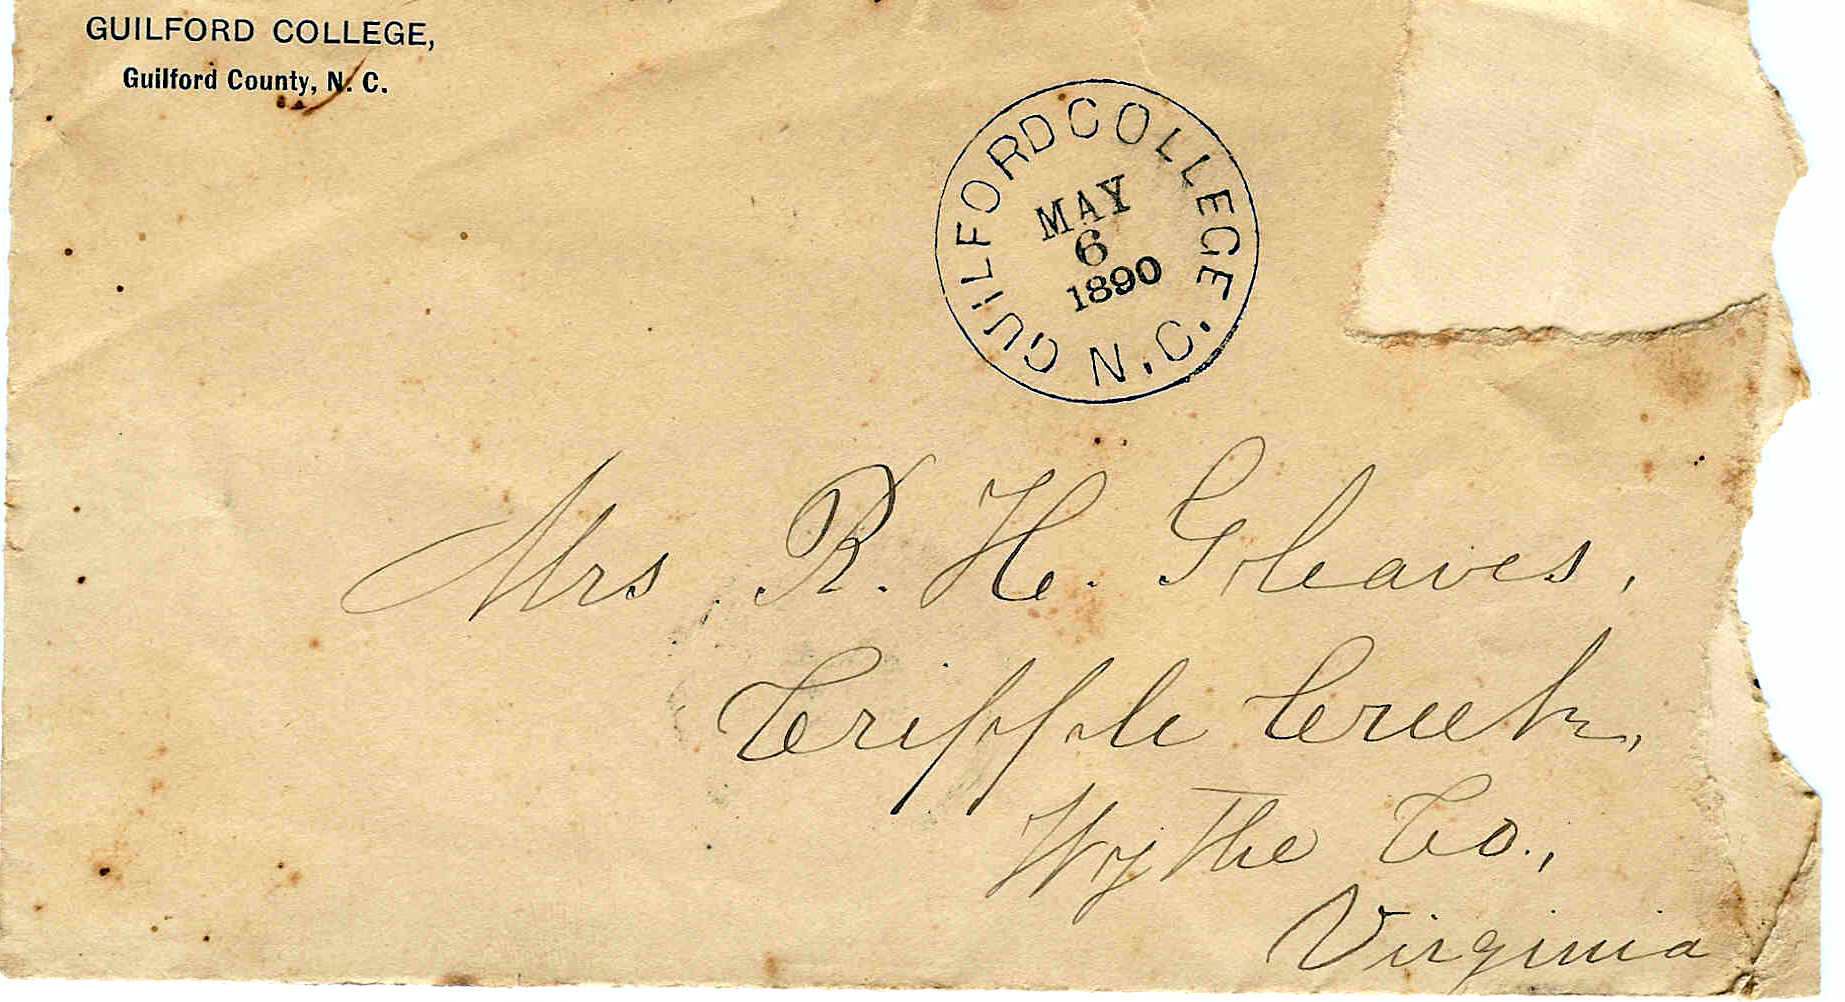 GUILFORD COLLEGE,
Guilford County, N. C.
GUILFORD COLLEGE. N.C.
MAY
6
1890
Mrs R. H. Gleaves,
Cripple Creek,
Wythe Co.,
Virginia